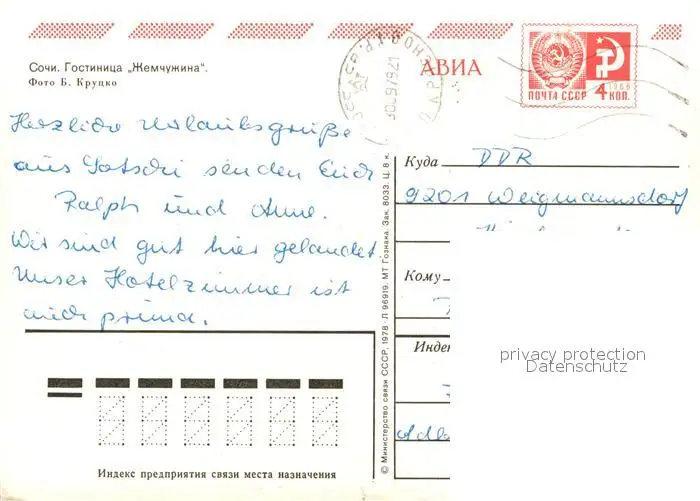 Сочи. Гостиница „Жемчужина".
Фото Б. Круцко
АВИА
ПОЧТА СССР 4 КОП.
1966
Herzliche Urlaubsgrüße
aus Sotschi senden Euch
Ralph und Anne.
Wir sind gut hier gelandet.
Unser Hotelzimmer ist
auch prima.
Куда DDR
9201 Weigmannsdorf
Кому
Индек
privacy protection
Datenschutz
Индекс предприятия связи места назначения
© Министерство связи СССР, 1978 · Л 96919. МТ Гознака. Зак. 8033. Ц. 8 к.